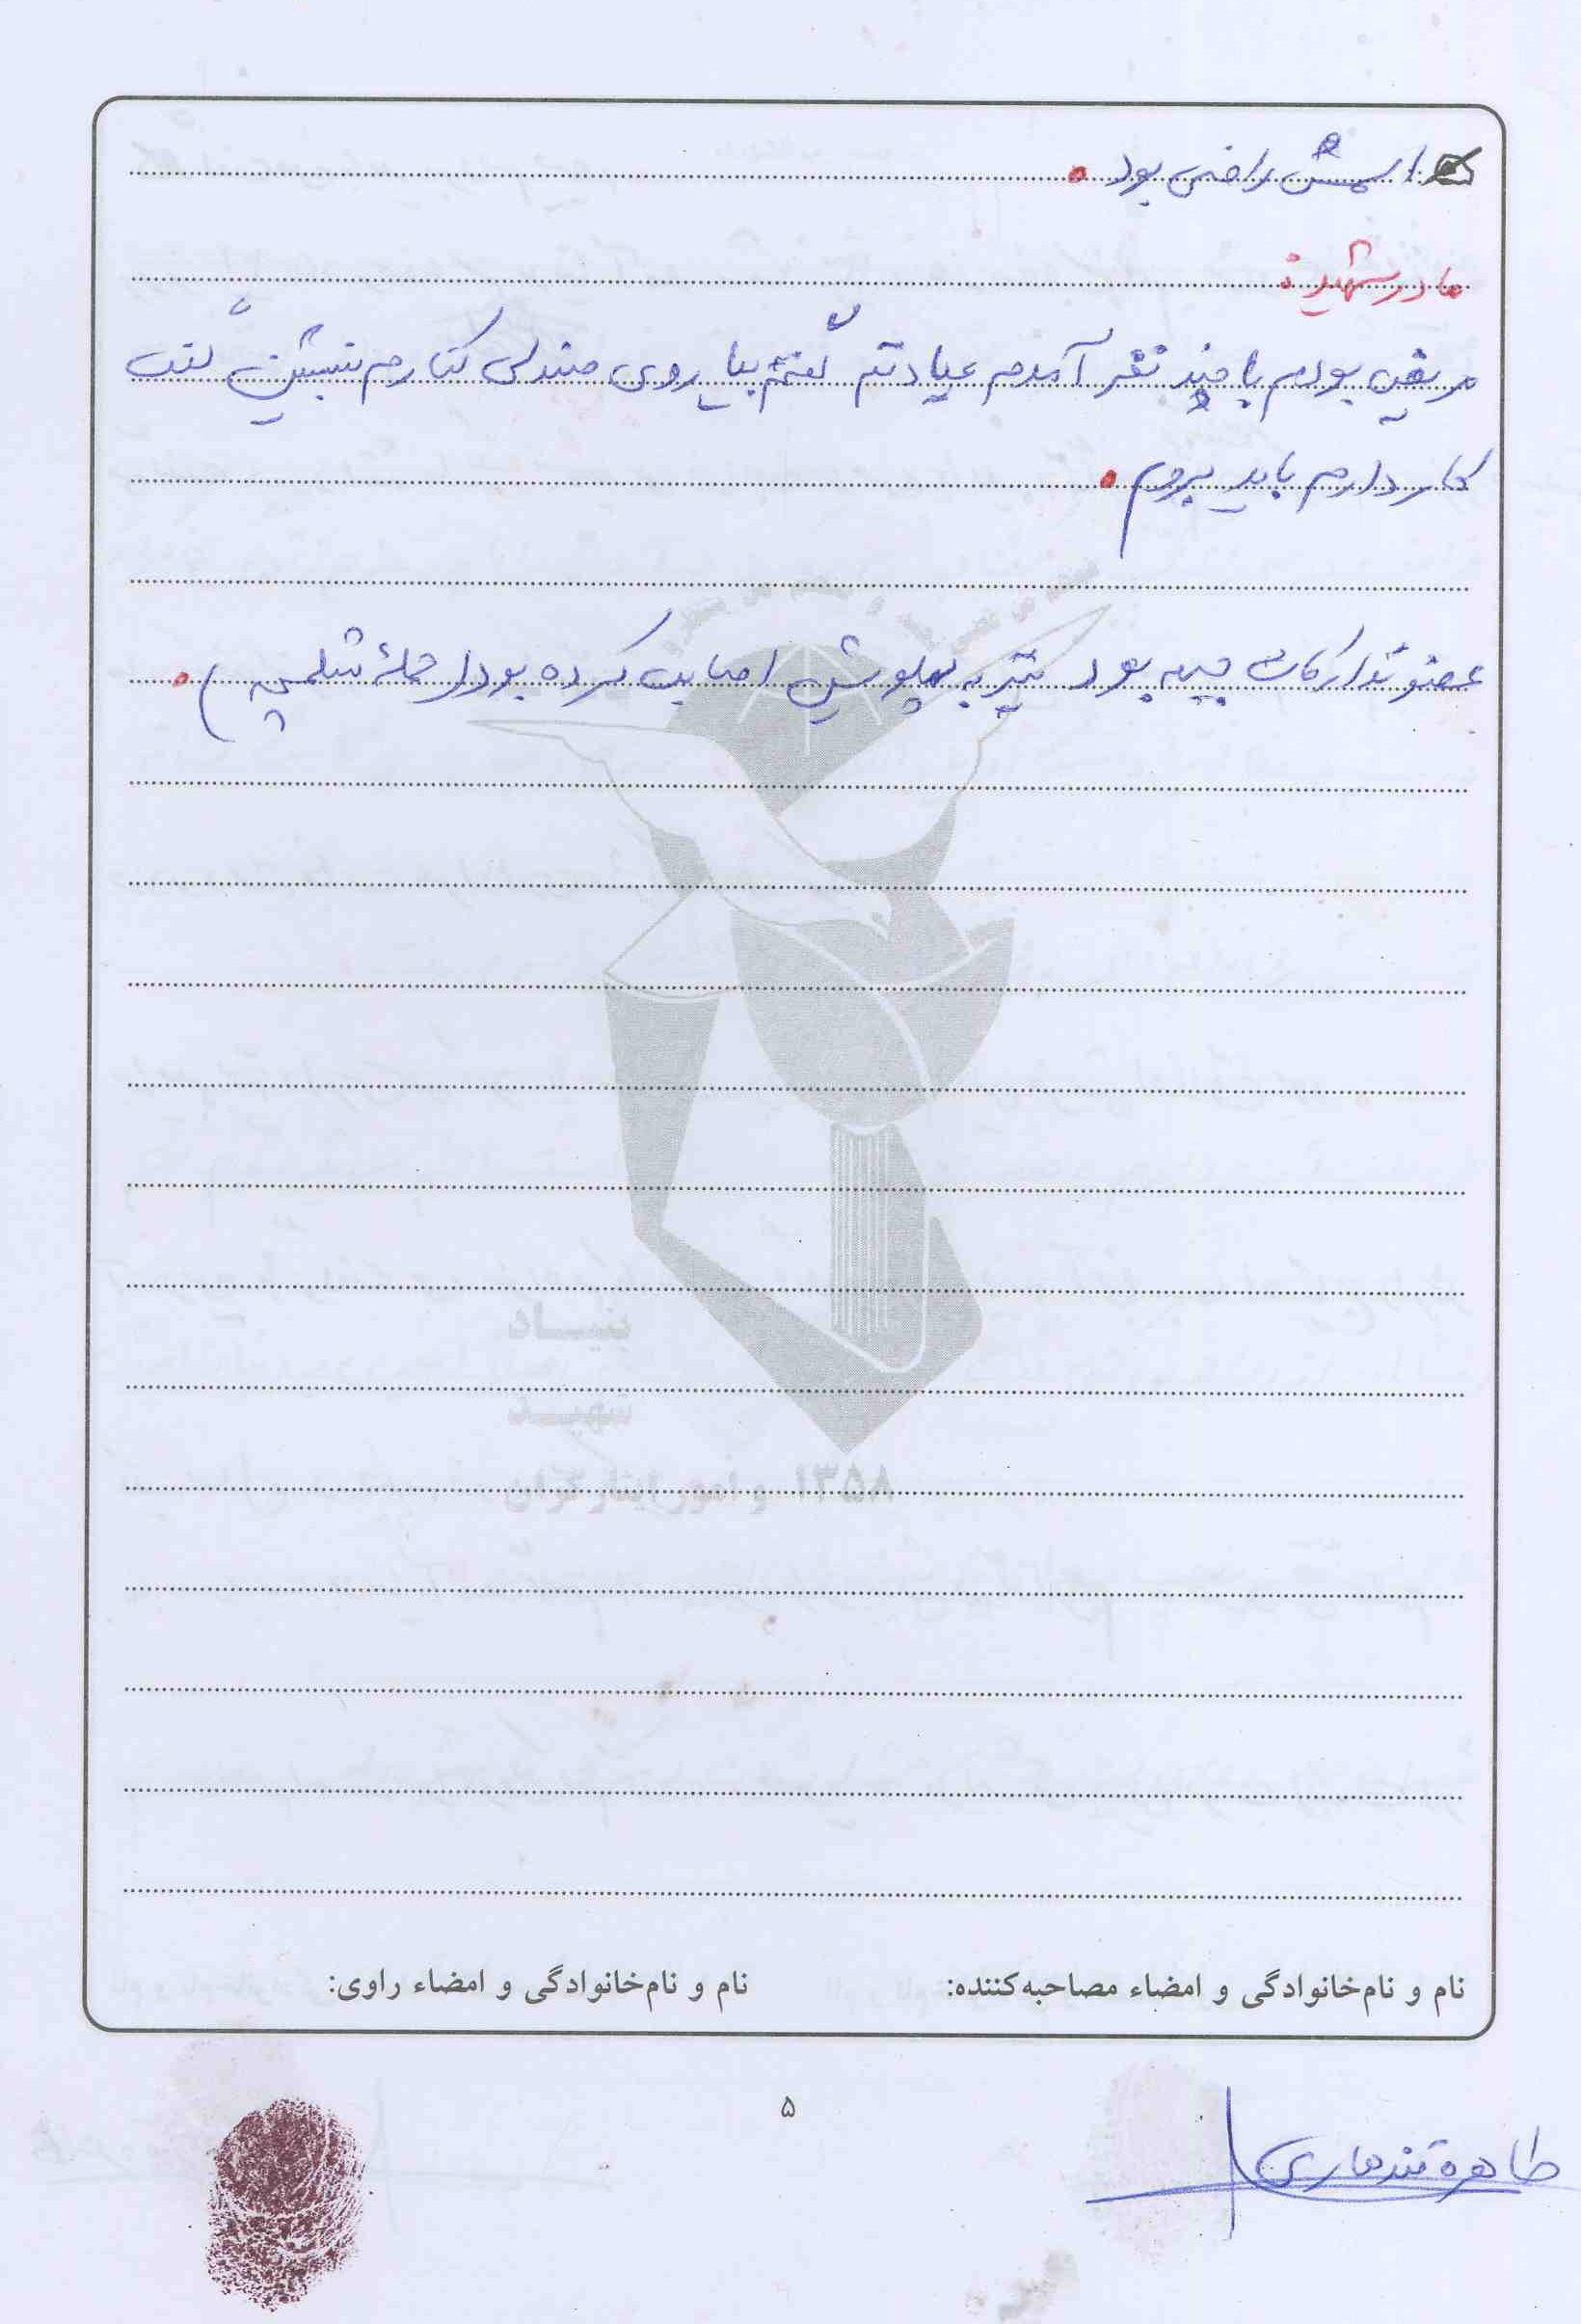 اسمش راضی بود.
مادر شهید:
مریض بودم با چند نفر آمدم عیادتم گفتم بیا روی صندلی کنارم بنشین گفت
کار دارم باید بروم.
عضو تدارکات جبهه بود تیر به پهلویش اصابت کرده بود (حمله شلمچه).
بنیاد
شهید
۱۳۵۸ و امور ایثارگران
نام و نام‌خانوادگی و امضاء مصاحبه‌کننده: نام و نام‌خانوادگی و امضاء راوی:
۵
طاهره قندهاری